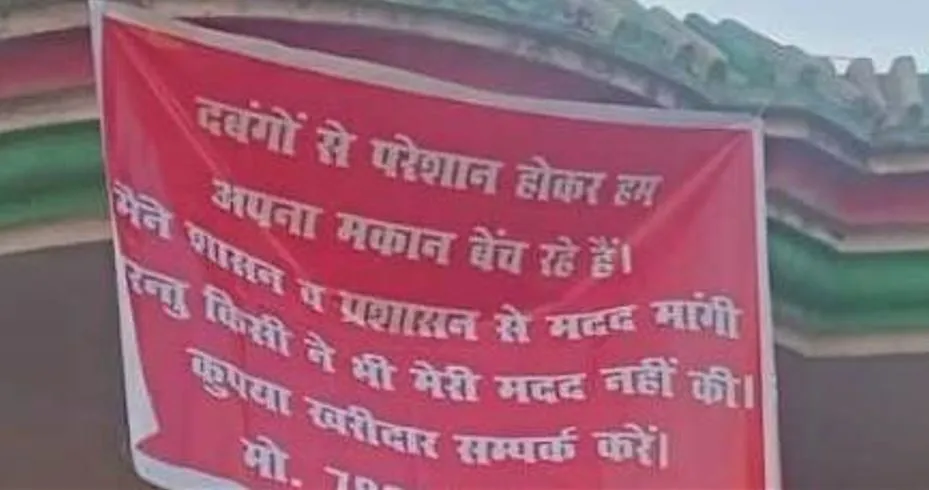 दबंगों से परेशान होकर हम
अपना मकान बेंच रहे हैं।
मैने शासन व प्रशासन से मदद मांगी
रन्तु किसी ने भी मेरी मदद नहीं की।
कृपया खरीदार सम्पर्क करें।
मो.